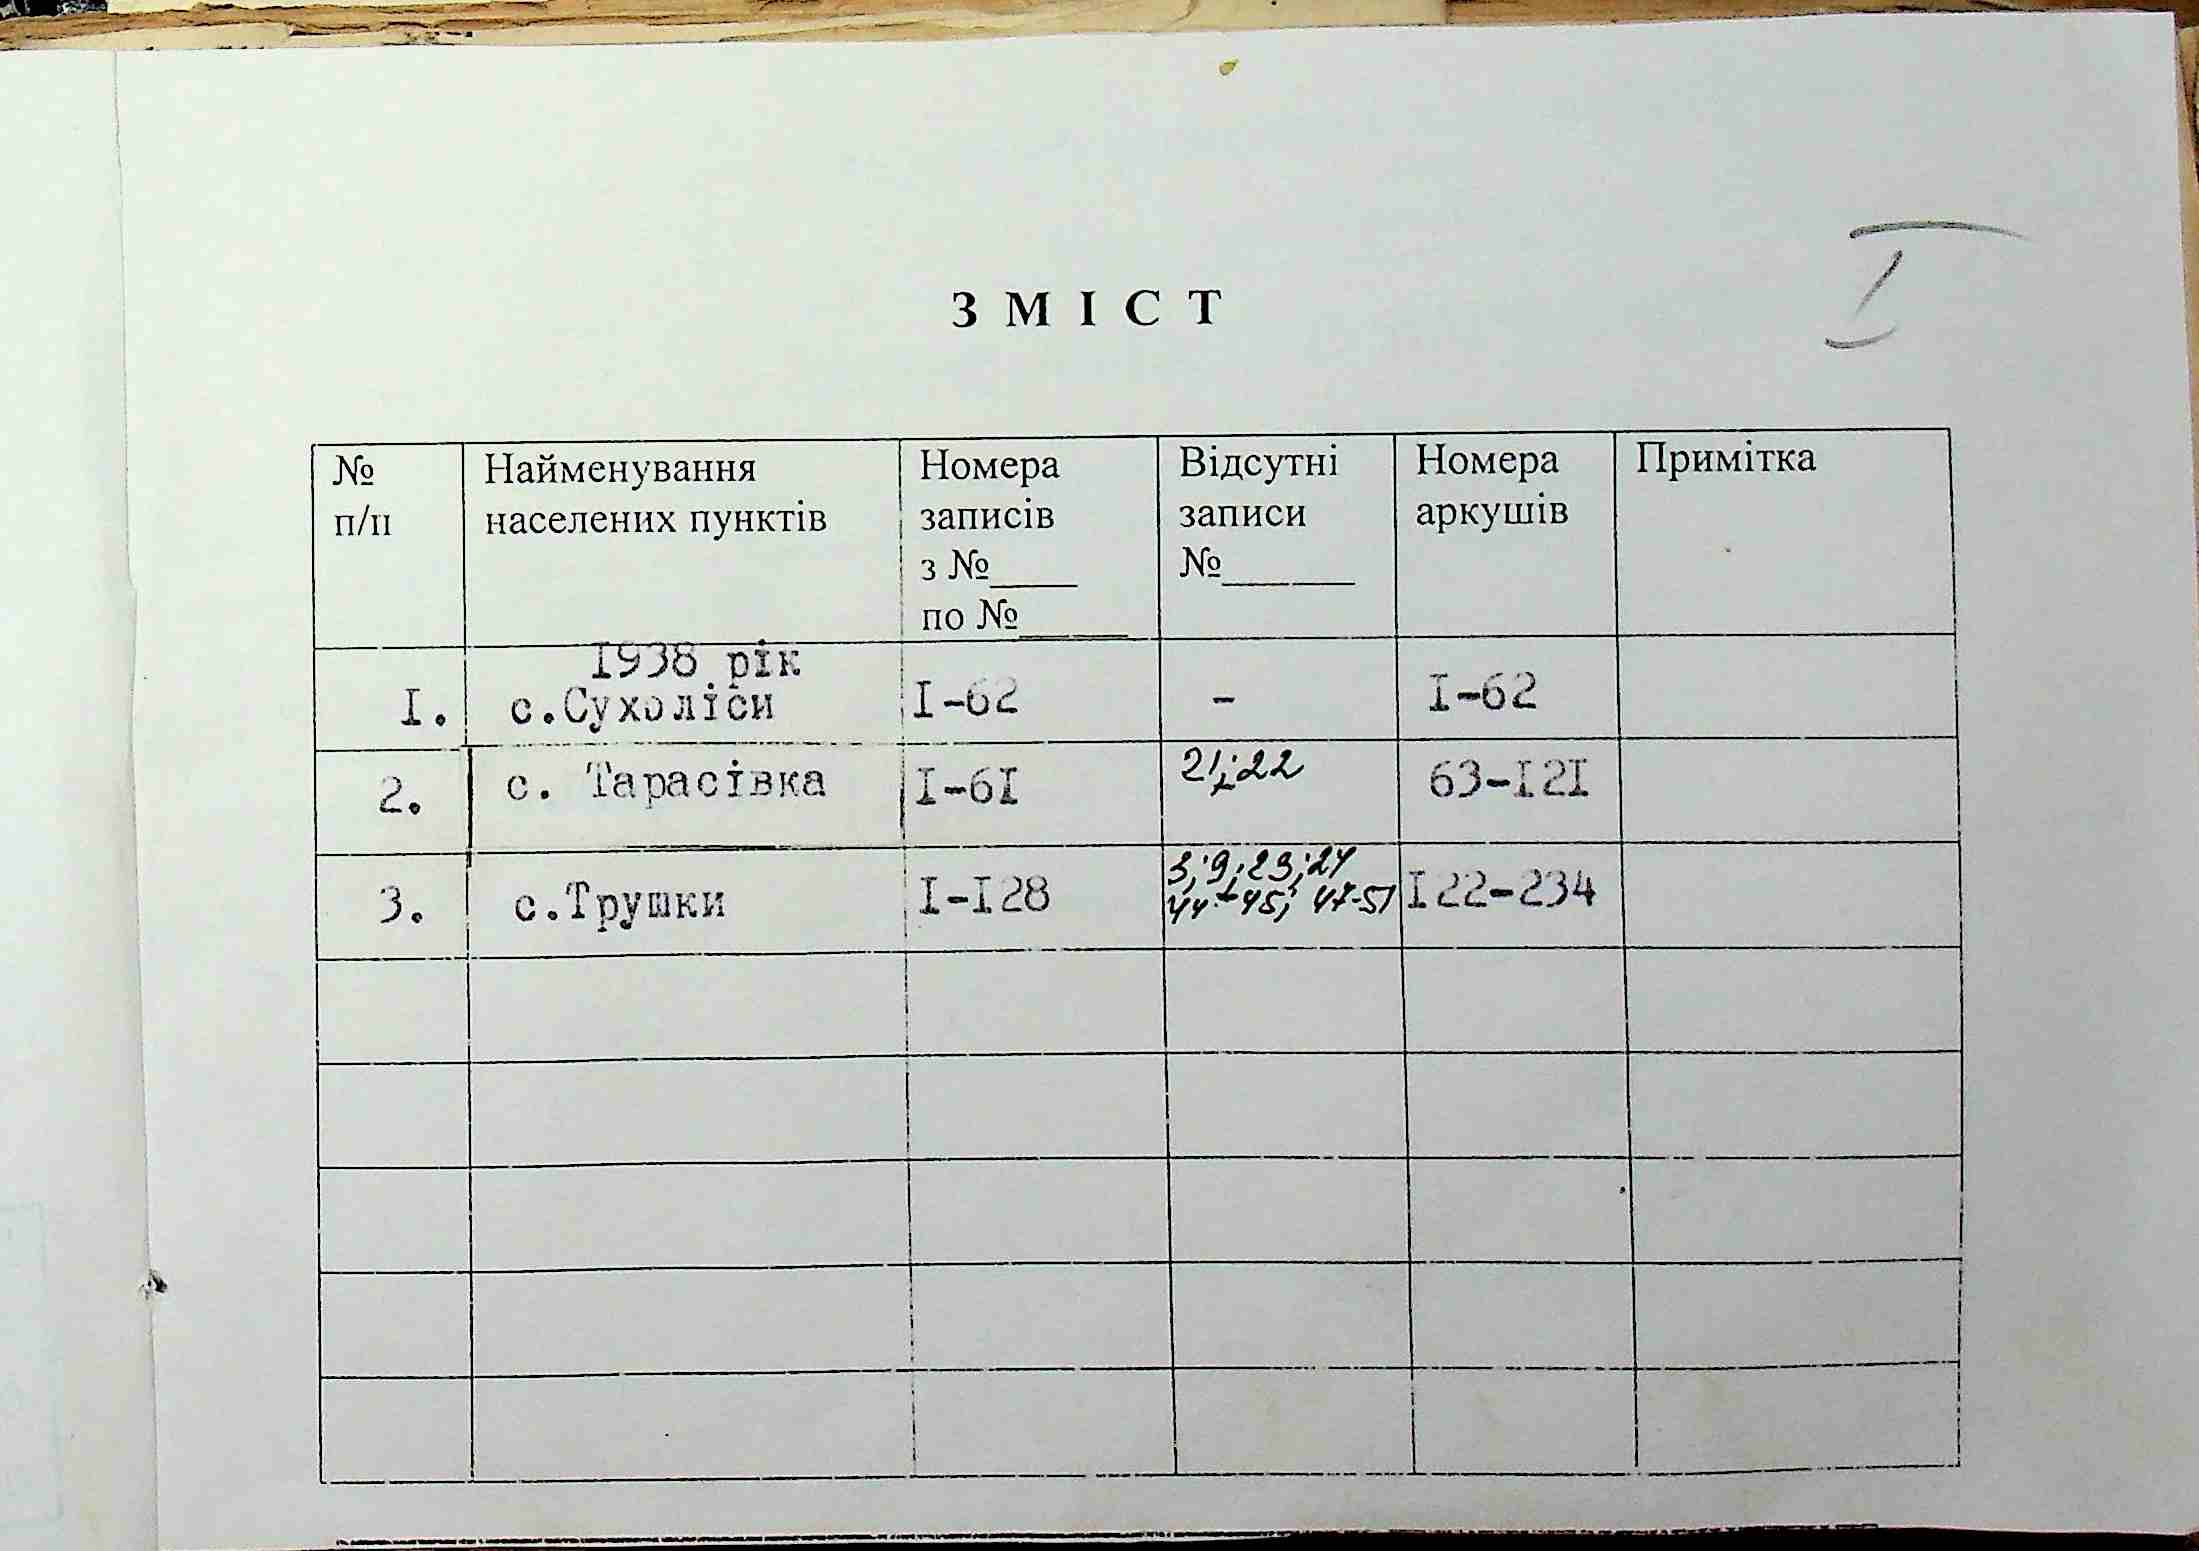 I
З М І С Т
№ п/п Найменування населених пунктів Номера записів з №____ по №_____ Відсутні записи №______ Номера аркушів Примітка
1938 рік
I. с.Сухоліси I-62 - I-62
2. с. Тарасівка I-6I 21; 22 63-I2I
3. с.Трушки I-I28 3; 9; 23; 24 I22-234
44-45; 47-51